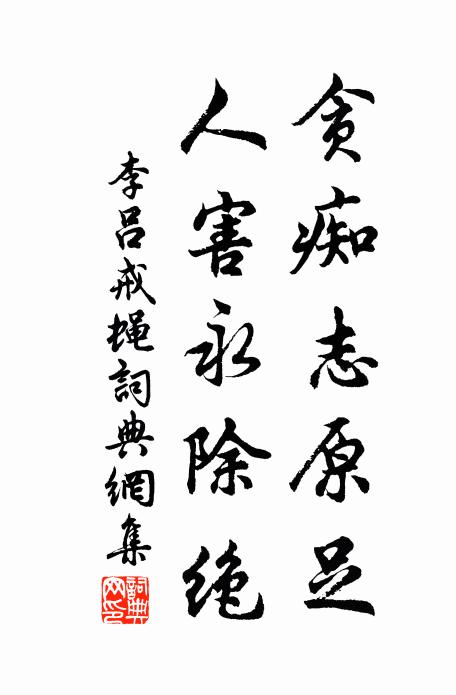 贪痴志原足
人害永除绝
李吕戒蝇詞典網集
詞典网印